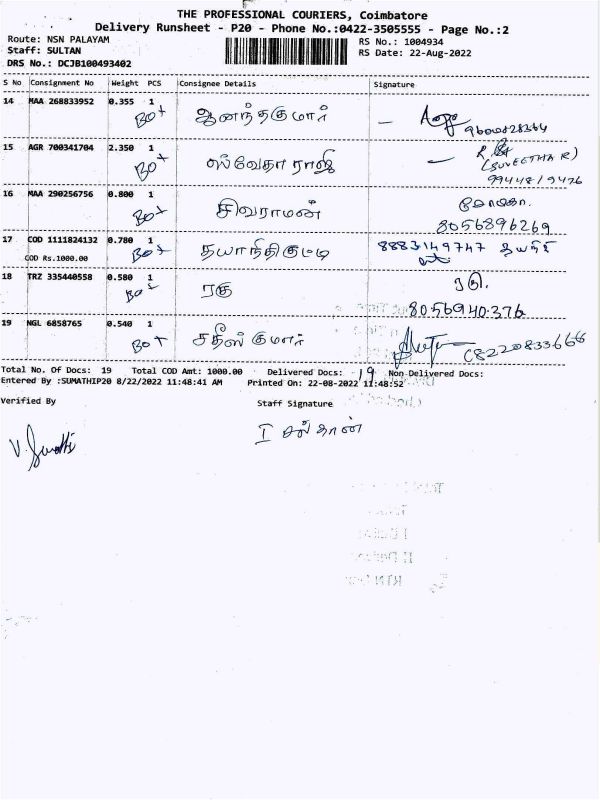 THE PROFESSIONAL COURIERS, Coimbatore
Delivery Runsheet - P20 - Phone No.:0422-3505555 - Page No.:2
Route: NSN PALAYAM
RS No.: 1004934
Staff: SULTAN
RS Date: 22-Aug-2022
DRS No.: DCJB100493402
S No Consignment No Weight PCS Consignee Details Signature
14 MAA 268833952 0.355 1 ஆனந்தகுமார்
Box 9600828364
15 AGR 700341704 2.350 1 ஸ்வேதா ராஜ்
Box (SUVEETHA R)
9944819476
16 MAA 290256756 0.800 1 சிவராமன்
Box 8056896269
17 COD 1111824132 0.780 1 தயாநிதிகுட்டி 8883149747
Box
COD Rs.1000.00
18 TRZ 335440558 0.580 1 ரகு
Box 8056940376
19 NGL 6858765 0.540 1 சதீஸ் குமார்
Box 8220833666
Total No. Of Docs: 19 Total COD Amt: 1000.00 Delivered Docs: 19 Non-Delivered Docs:
Entered By :SUMATHIP20 8/22/2022 11:48:41 AM Printed On: 22-08-2022 11:48:52
Verified By Staff Signature
V. Sumathi
I சுல்தான்